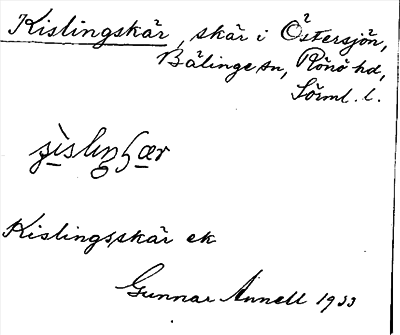 Kislingskär, skär i Östersjön,
Bälinge sn, Rönö hd,
Sörml. l.
Kislingsskär ek
Gunnar Annell 1933